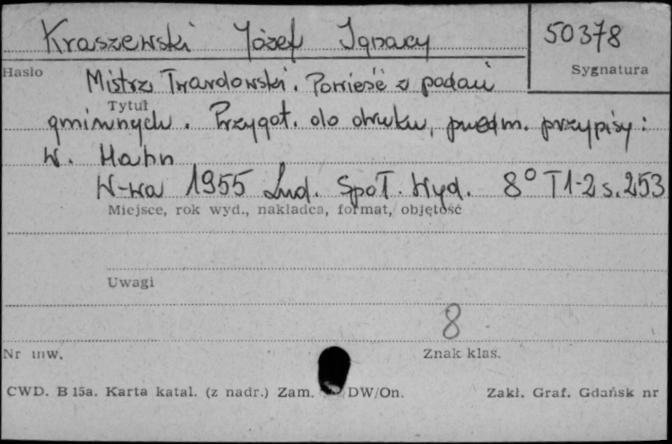 Kraszewski Józef Ignacy
50378
Hasło
Sygnatura
Mistrz Twardowski. Powieść z podań
Tytuł
gminnych. Przygot. do druku, przedm. przypisy:
W. Hahn
W-wa 1955 Lud. Społ. Wyd. 8° T 1-2 s. 253
Miejsce, rok wyd., nakładca, format, objętość
Uwagi
8
Nr inw.
Znak klas.
CWD. B 15a. Karta katal. (z nadr.) Zam. DW/On.
Zakł. Graf. Gdańsk nr